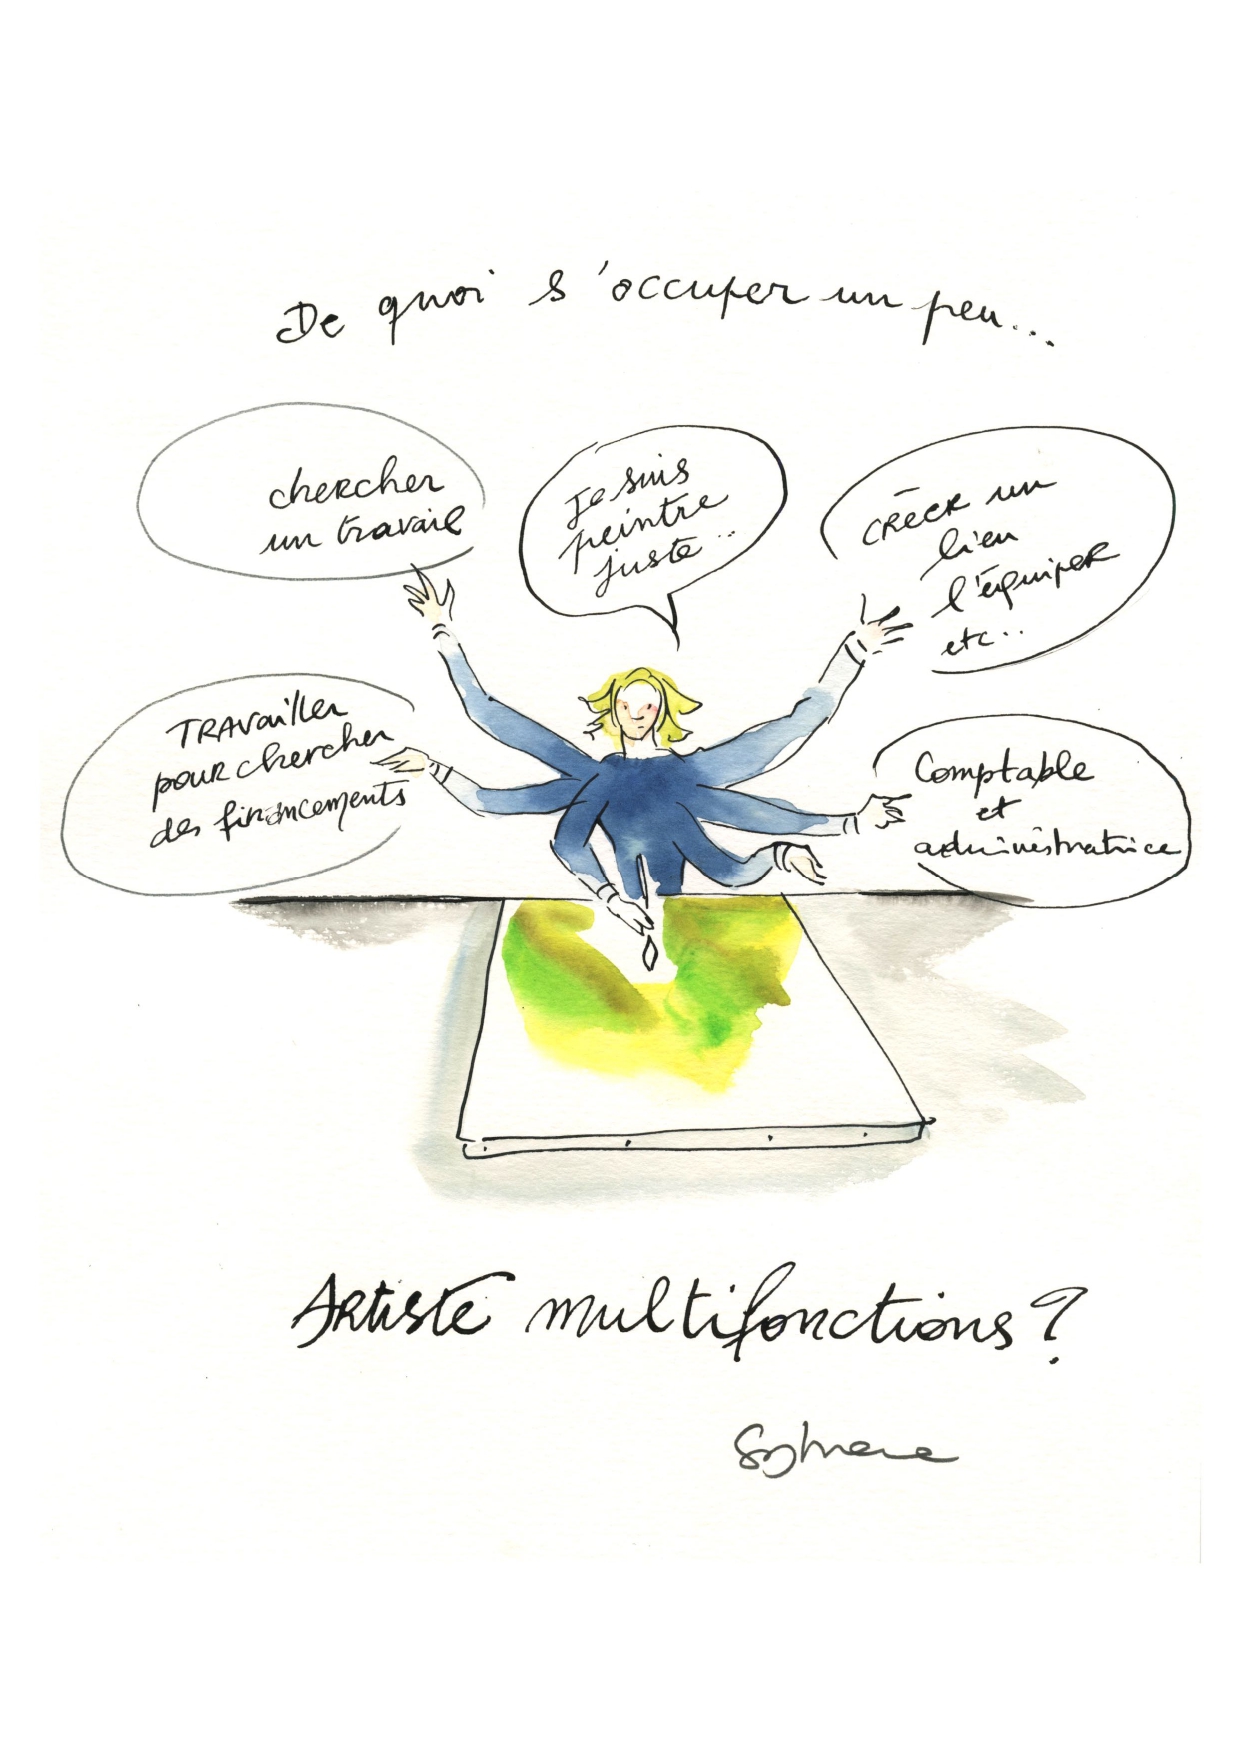 De quoi s'occuper un peu...
chercher
un travail
Je suis
peintre
juste...
CRÉER un
lieu
l'équiper
etc..
TRAVailler
pour chercher
des financements
Comptable
et
administratrice
Artiste multifonctions ?